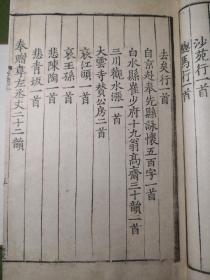 沙苑行一首
驄馬行一首
去矣行一首
自京赴奉先縣詠懷五百字一首
白水縣崔少府十九翁高齋三十韻一首
三川觀水漲一首
大雲寺贊公房二首
哀江頭一首
哀王孫一首
悲陳陶一首
悲青坂一首
奉贈韋左丞丈二十二韻